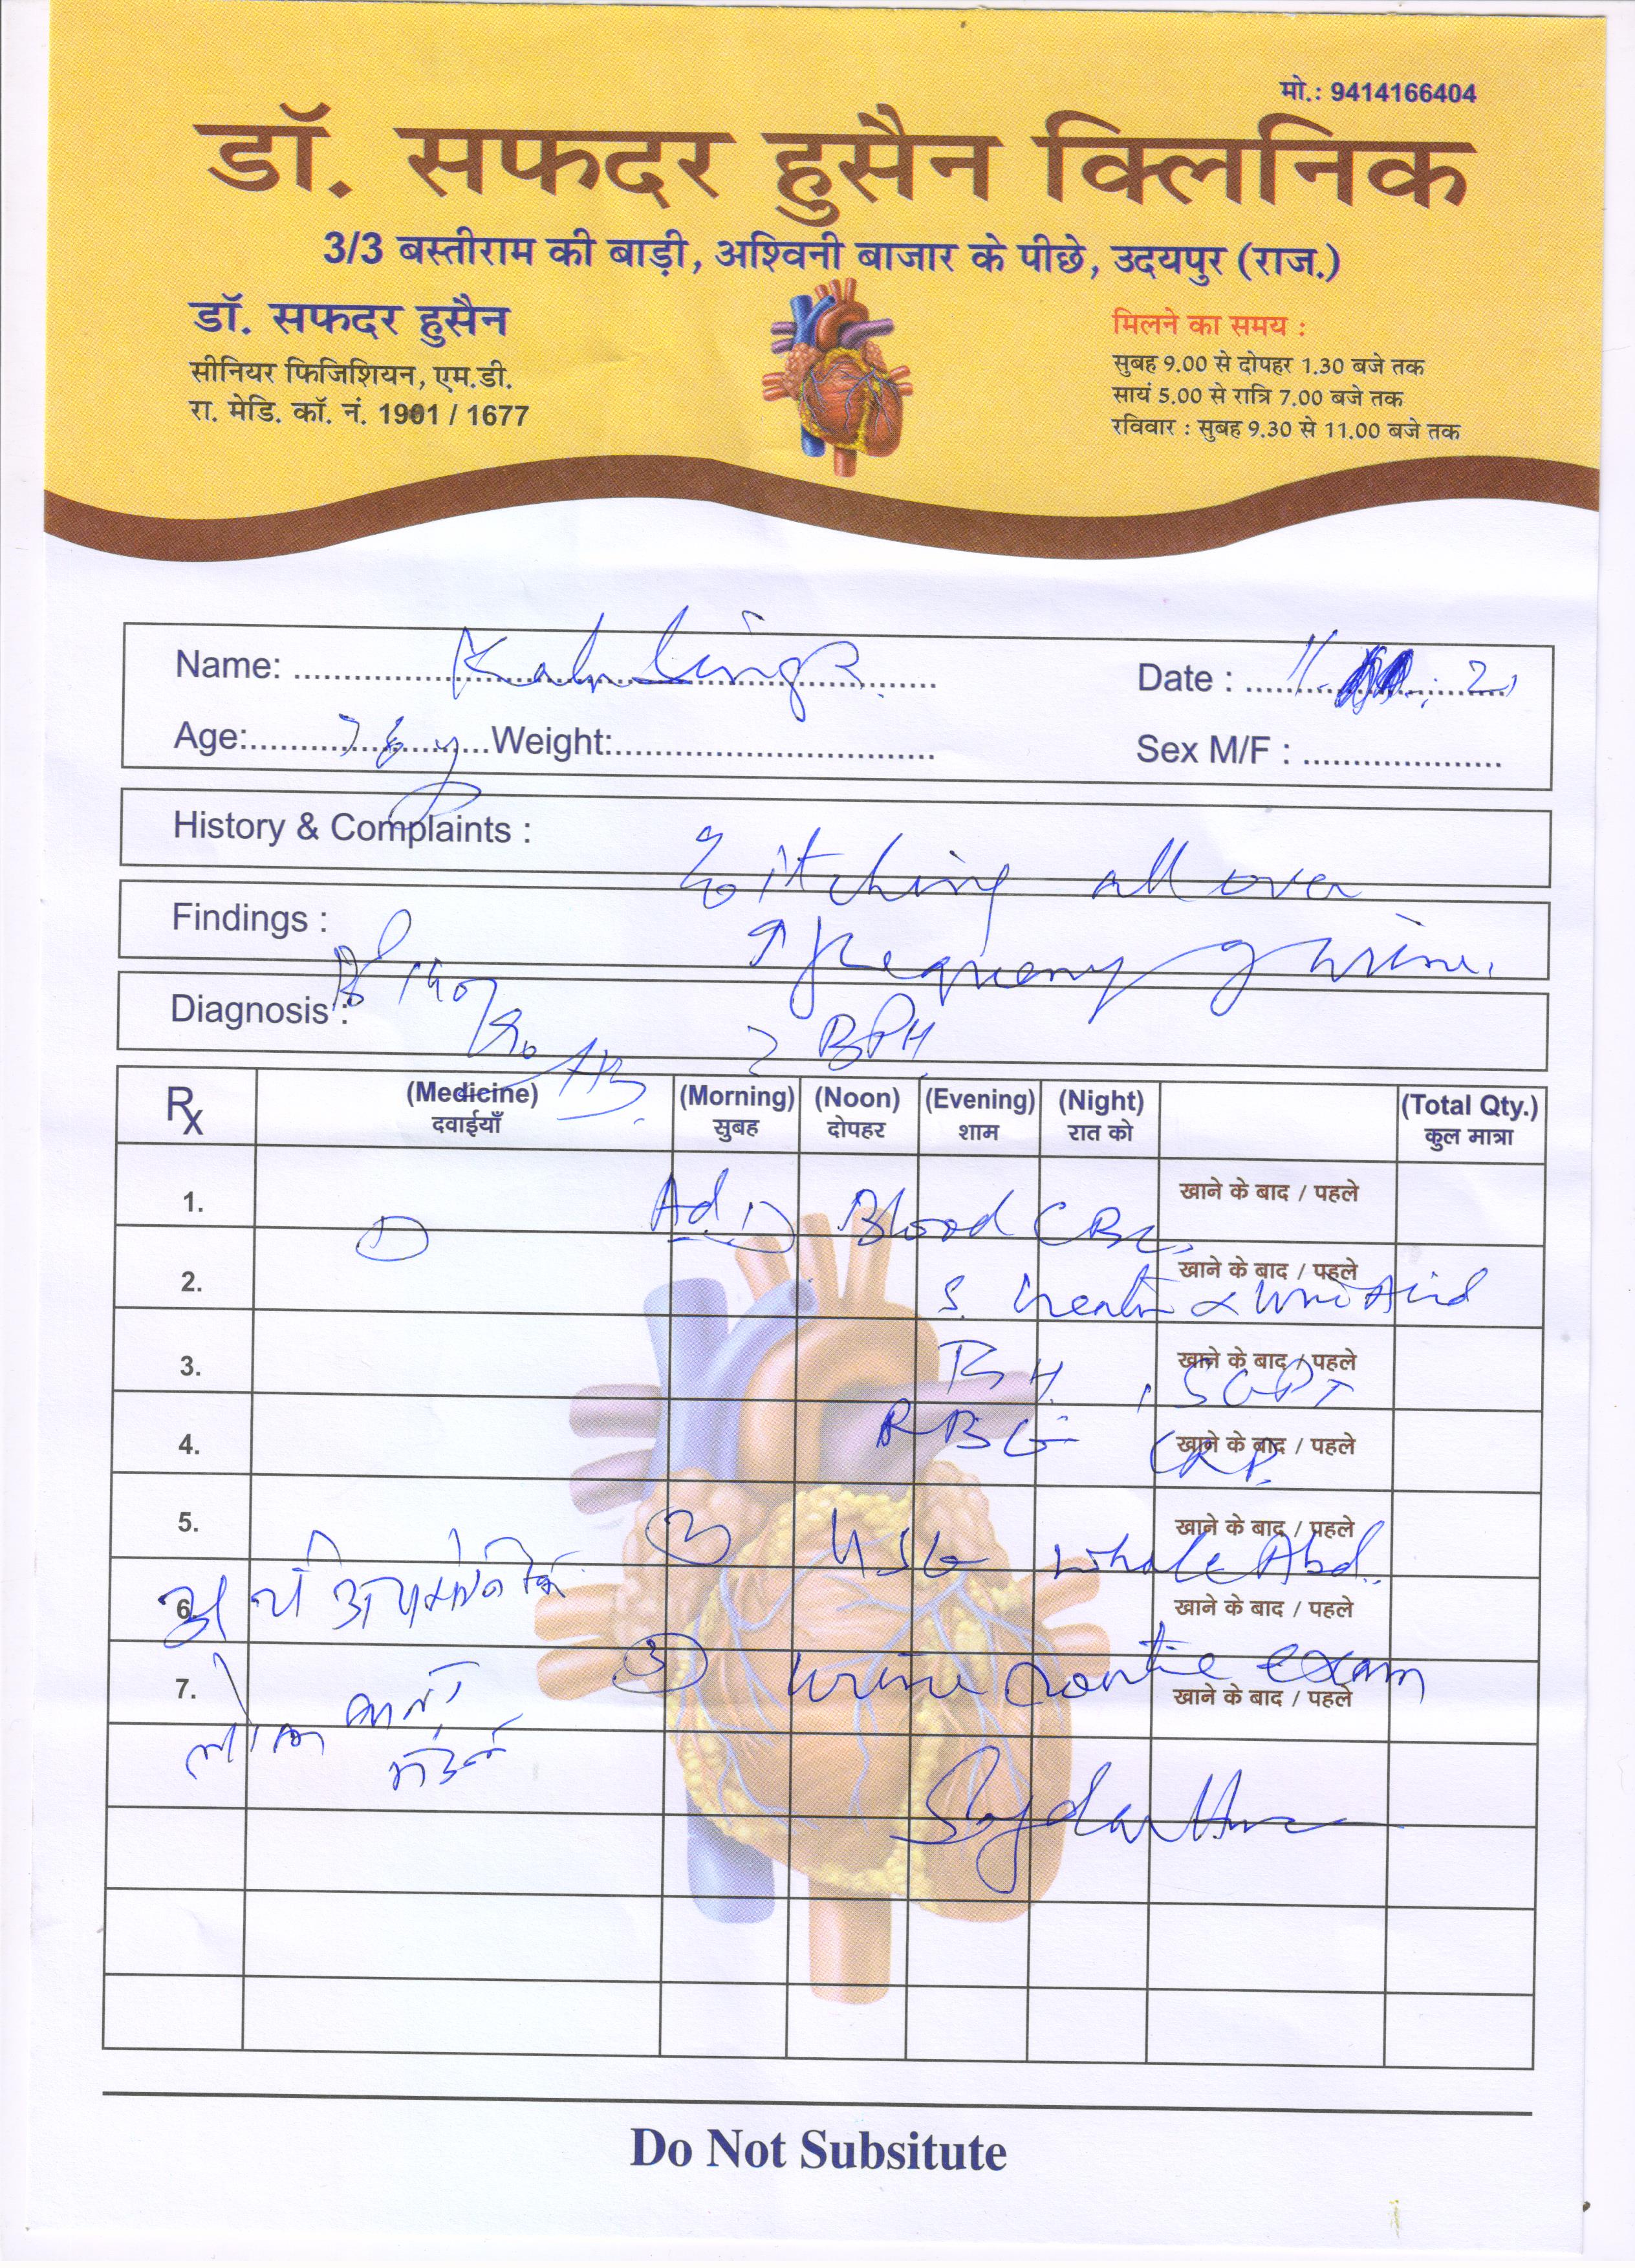 मो.: 9414166404
डॉ. सफदर हुसैन क्लिनिक
3/3 बस्तीराम की बाड़ी, अश्विनी बाजार के पीछे, उदयपुर (राज.)
डॉ. सफदर हुसैन
सीनियर फिजिशियन, एम.डी.
रा. मेडि. कॉ. नं. 1991 / 1677
मिलने का समय :
सुबह 9.00 से दोपहर 1.30 बजे तक
सायं 5.00 से रात्रि 7.00 बजे तक
रविवार : सुबह 9.30 से 11.00 बजे तक
Name: Date :
Age: Weight: Sex M/F :
History & Complaints :
itching all over
Findings :
↑ frequency of urine.
Diagnosis :
? BPH
Rx (Medicine) (Morning) (Noon) (Evening) (Night) (Total Qty.)
दवाईयाँ सुबह दोपहर शाम रात को कुल मात्रा
1. खाने के बाद / पहले
Ad 1) Blood CBC,
2. खाने के बाद / पहले
S. & Uric Acid
3. खाने के बाद / पहले
SGPT
4. खाने के बाद / पहले
RBG CRP.
5. खाने के बाद / पहले
2 USG whole Abd.
6. खाने के बाद / पहले
3 urine routine exam
7. खाने के बाद / पहले
Do Not Subsitute